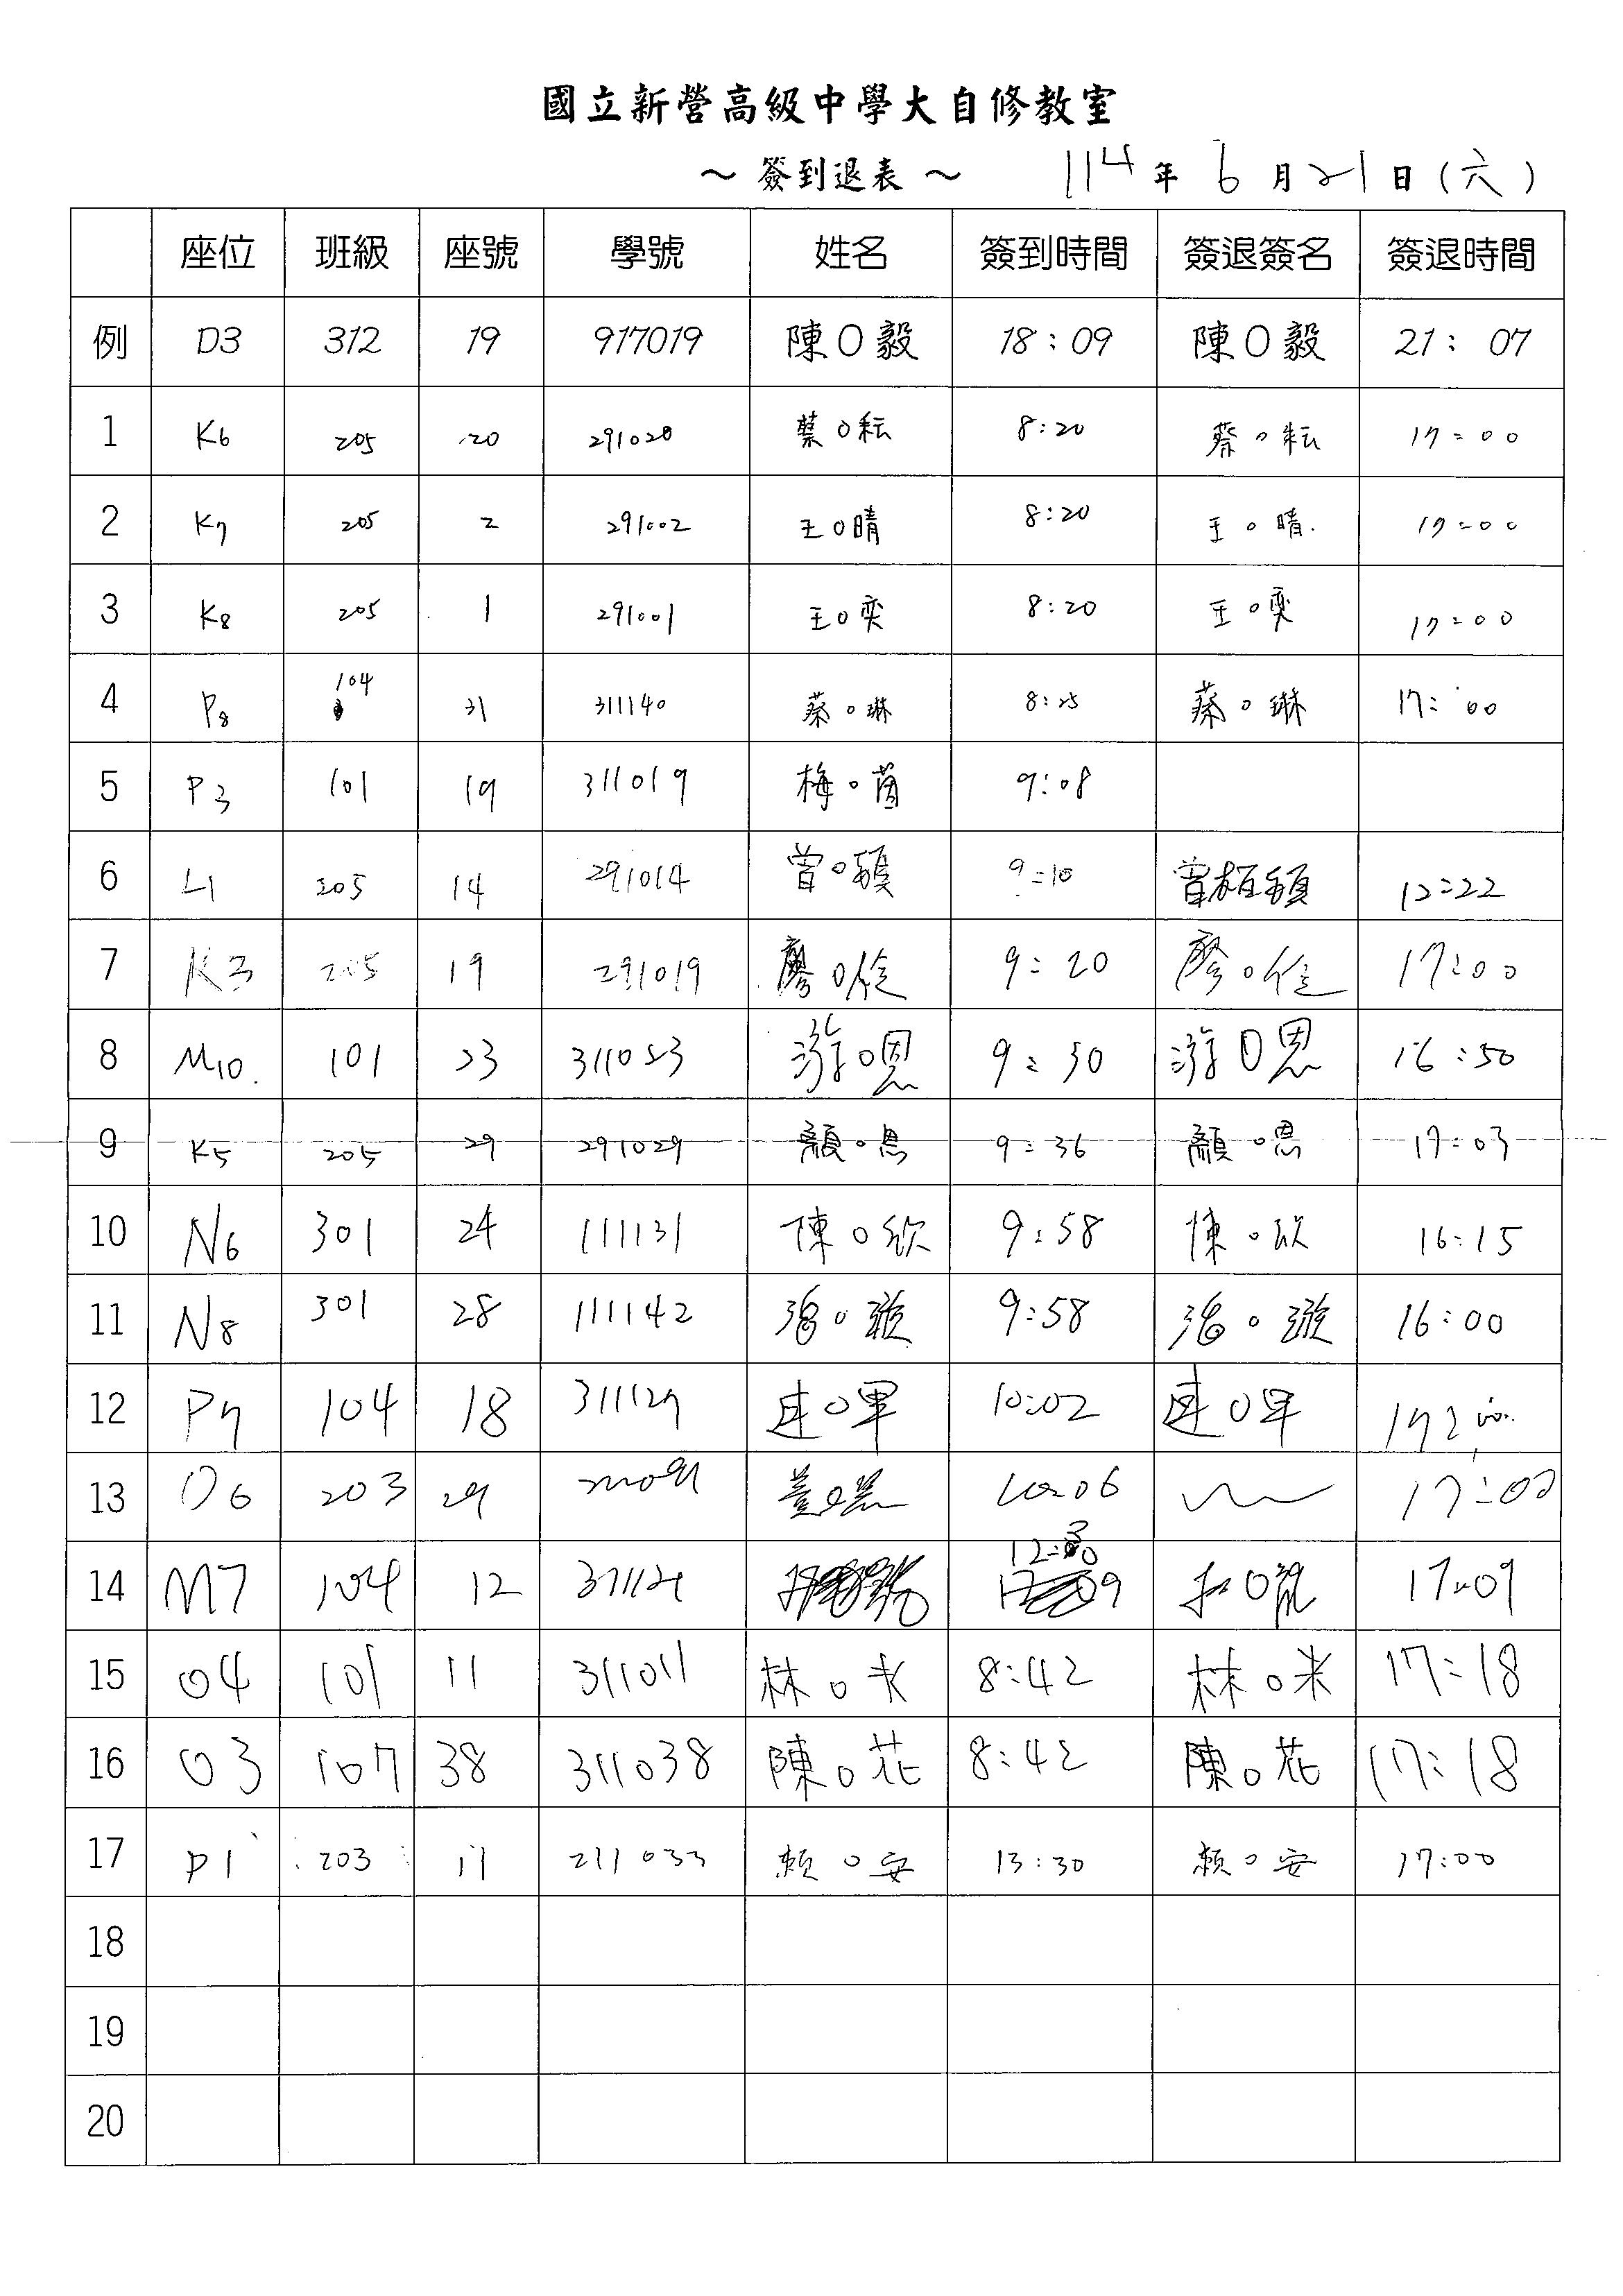 國立新營高級中學大自修教室
～ 簽到退表 ～ 114 年 6 月 21 日 (六)
座位 班級 座號 學號 姓名 簽到時間 簽退簽名 簽退時間
例 D3 312 19 917019 陳○毅 18:09 陳○毅 21:07
1 K6 205 20 291020 蔡○耘 8:20 蔡○耘 17:00
2 K7 205 2 291002 王○晴 8:20 王○晴 17:00
3 K8 205 1 291001 王○奕 8:20 王○奕 17:00
4 P8 104 31 311140 蔡○琳 8:25 蔡○琳 17:00
5 P3 101 19 311019 梅○茵 9:08
6 L1 205 14 291014 曾○ 9:10 曾 12:22
7 K3 205 19 291019 廖○ 9:20 廖○ 17:00
8 M10 101 23 311023 游○恩 9:30 游○恩 16:50
9 K5 205 29 291029 顏○恩 9:36 顏○恩 17:03
10 N6 301 24 111131 陳○欣 9:58 陳○欣 16:15
11 N8 301 28 111142 馮○璇 9:58 馮○璇 16:00
12 P7 104 18 311127 連○ 10:02 連○ 17:00
13 O6 203 29 10:06 17:00
14 M7 104 12 12:30 17:09
15 O4 101 11 311011 林○米 8:42 林○米 17:18
16 O3 107 38 311038 陳○花 8:42 陳○花 17:18
17 P1 203 11 211033 賴○安 13:30 賴○安 17:00
18
19
20